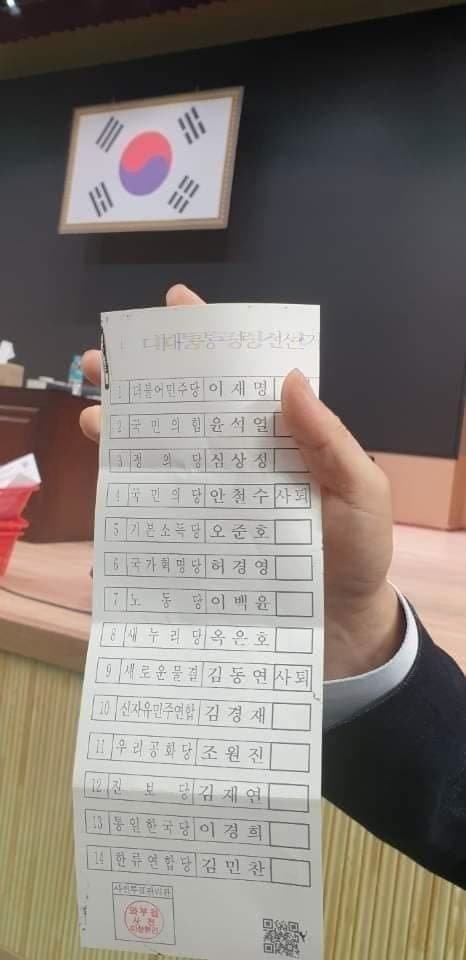 1 더불어민주당 이재명
2 국민의힘 윤석열
3 정의당 심상정
4 국민의당 안철수 사퇴
5 기본소득당 오준호
6 국가혁명당 허경영
7 노동당 이백윤
8 새누리당 옥은호
9 새로운물결 김동연 사퇴
10 신자유민주연합 김경재
11 우리공화당 조원진
12 진보당 김재연
13 통일한국당 이경희
14 한류연합당 김민찬
사전투표관리관
와부읍
사전